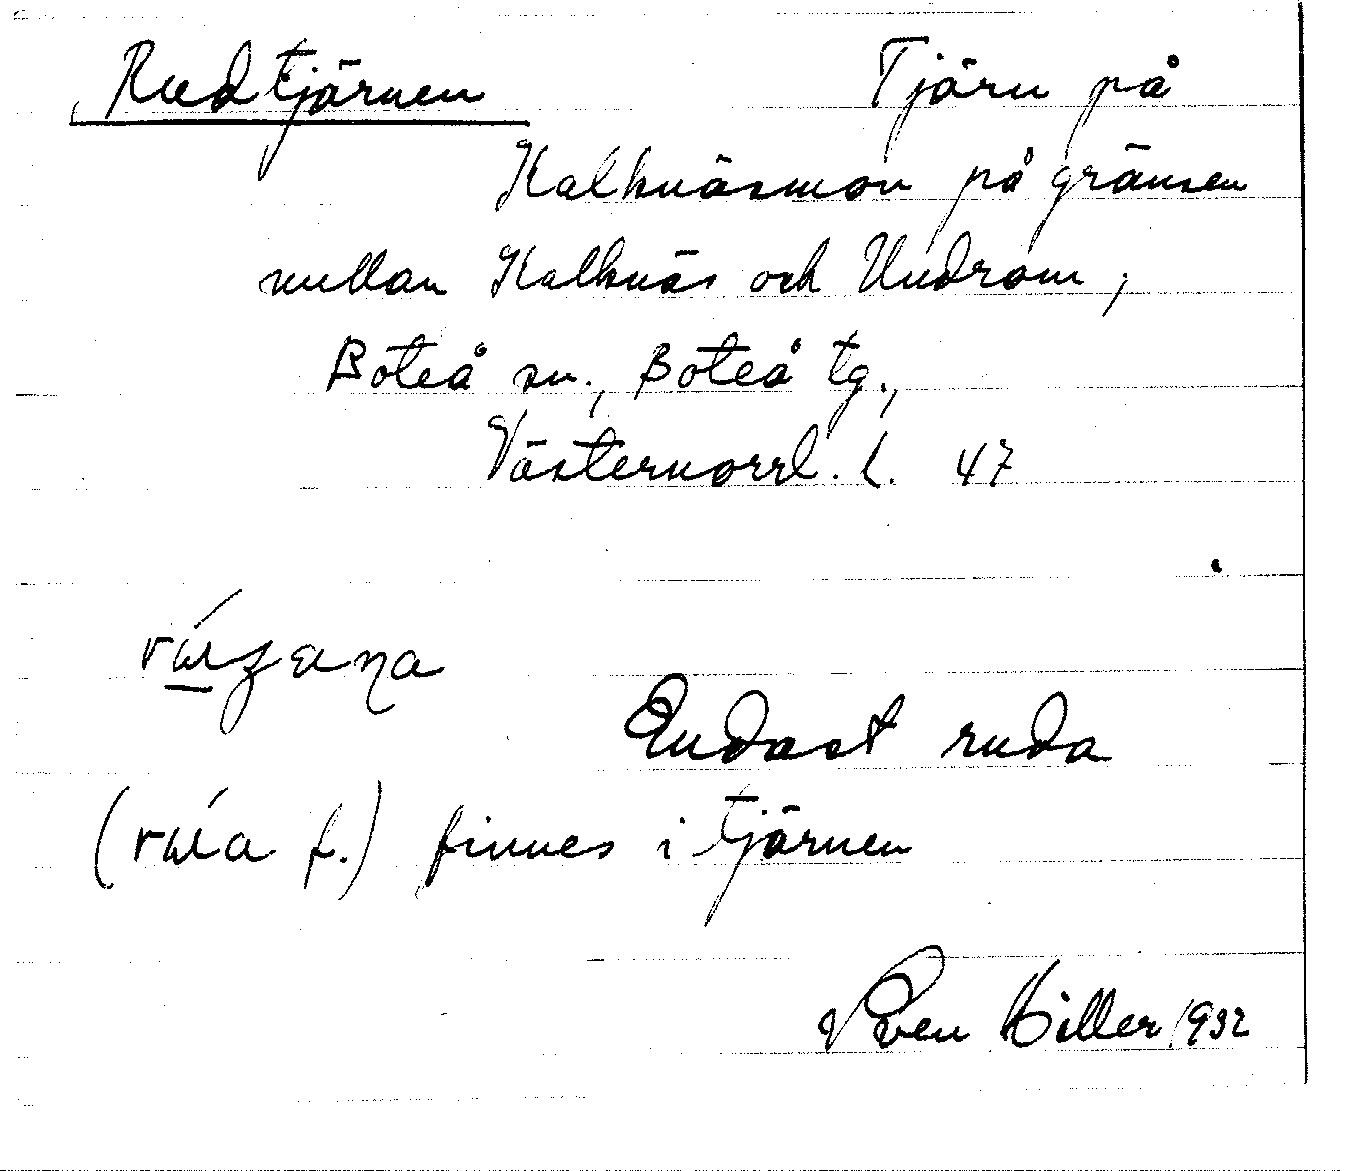 Rudtjärnen Tjärn på
Kalknäsmon på gränsen
mellan Kalknäs och Undrom,
Boteå sn., Boteå tg.,
Västernorrl. l. 47
Endast ruda
f.) finnes i tjärnen
Sven Hiller 1932